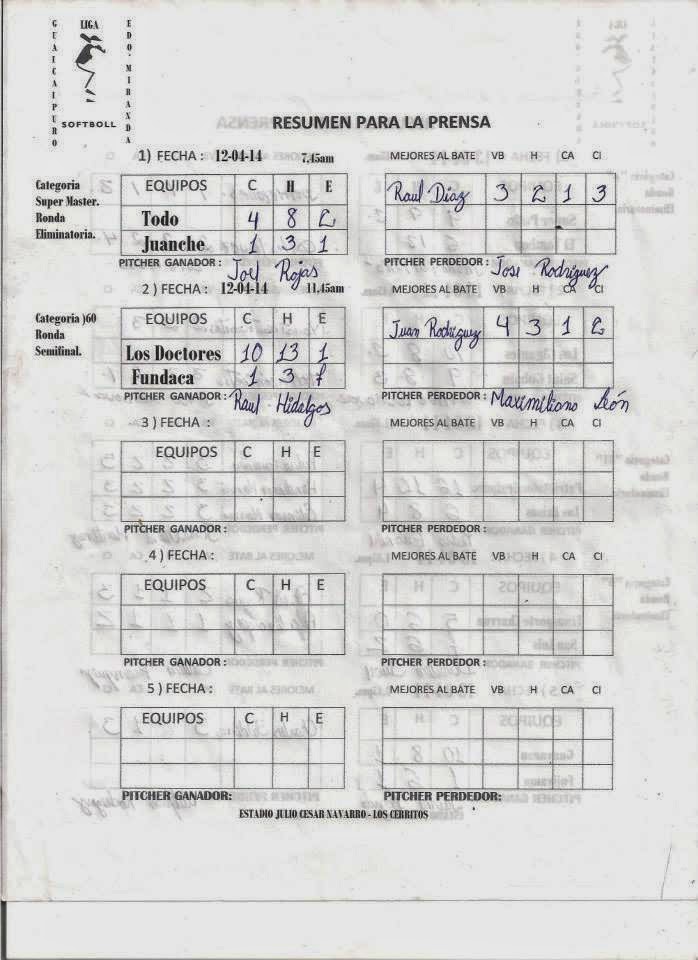 GUAICAIPURO LIGA EDO. MIRANDA
SOFTBOLL
RESUMEN PARA LA PRENSA
1) FECHA : 12-04-14 7,45am MEJORES AL BATE VB H CA CI
Categoria Super Master. Ronda Eliminatoria.
EQUIPOS C H E
Raul Diaz 3 2 1 3
Todo 4 8 2
Juanche 1 3 1
PITCHER GANADOR : Joel Rojas PITCHER PERDEDOR : Jose Rodriguez
2 ) FECHA : 12-04-14 11,45am MEJORES AL BATE VB H CA CI
Categoria )60 Ronda Semifinal.
EQUIPOS C H E
Juan Rodriguez 4 3 1 2
Los Doctores 10 13 1
Fundaca 1 3
PITCHER GANADOR : Raul Hidalgos PITCHER PERDEDOR : Maximiliano León
3 ) FECHA : MEJORES AL BATE VB H CA CI
EQUIPOS C H E
PITCHER GANADOR : PITCHER PERDEDOR :
4 ) FECHA : MEJORES AL BATE VB H CA CI
EQUIPOS C H E
PITCHER GANADOR : PITCHER PERDEDOR :
5 ) FECHA : MEJORES AL BATE VB H CA CI
EQUIPOS C H E
PITCHER GANADOR: PITCHER PERDEDOR:
ESTADIO JULIO CESAR NAVARRO - LOS CERRITOS